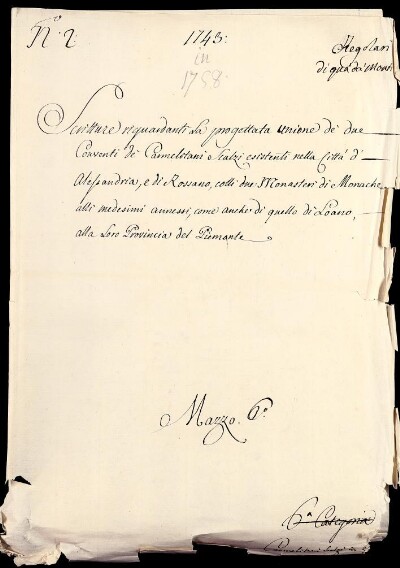 N.º 2.
1743:
in
1758.
Regolari
di qua da' Monti
Scritture riguardanti la progettata unione de' due
Conventi de' Carmelitani Scalzi esistenti nella Città d'
Alessandria, e di Rossano, colli due Monasteri di Monache
alli medesimi annessi, come anche di quello di Loano,
alla Loro Provincia del Piemonte
Mazzo. 6º
6.ª Categoria
Carmelitani Scalzi